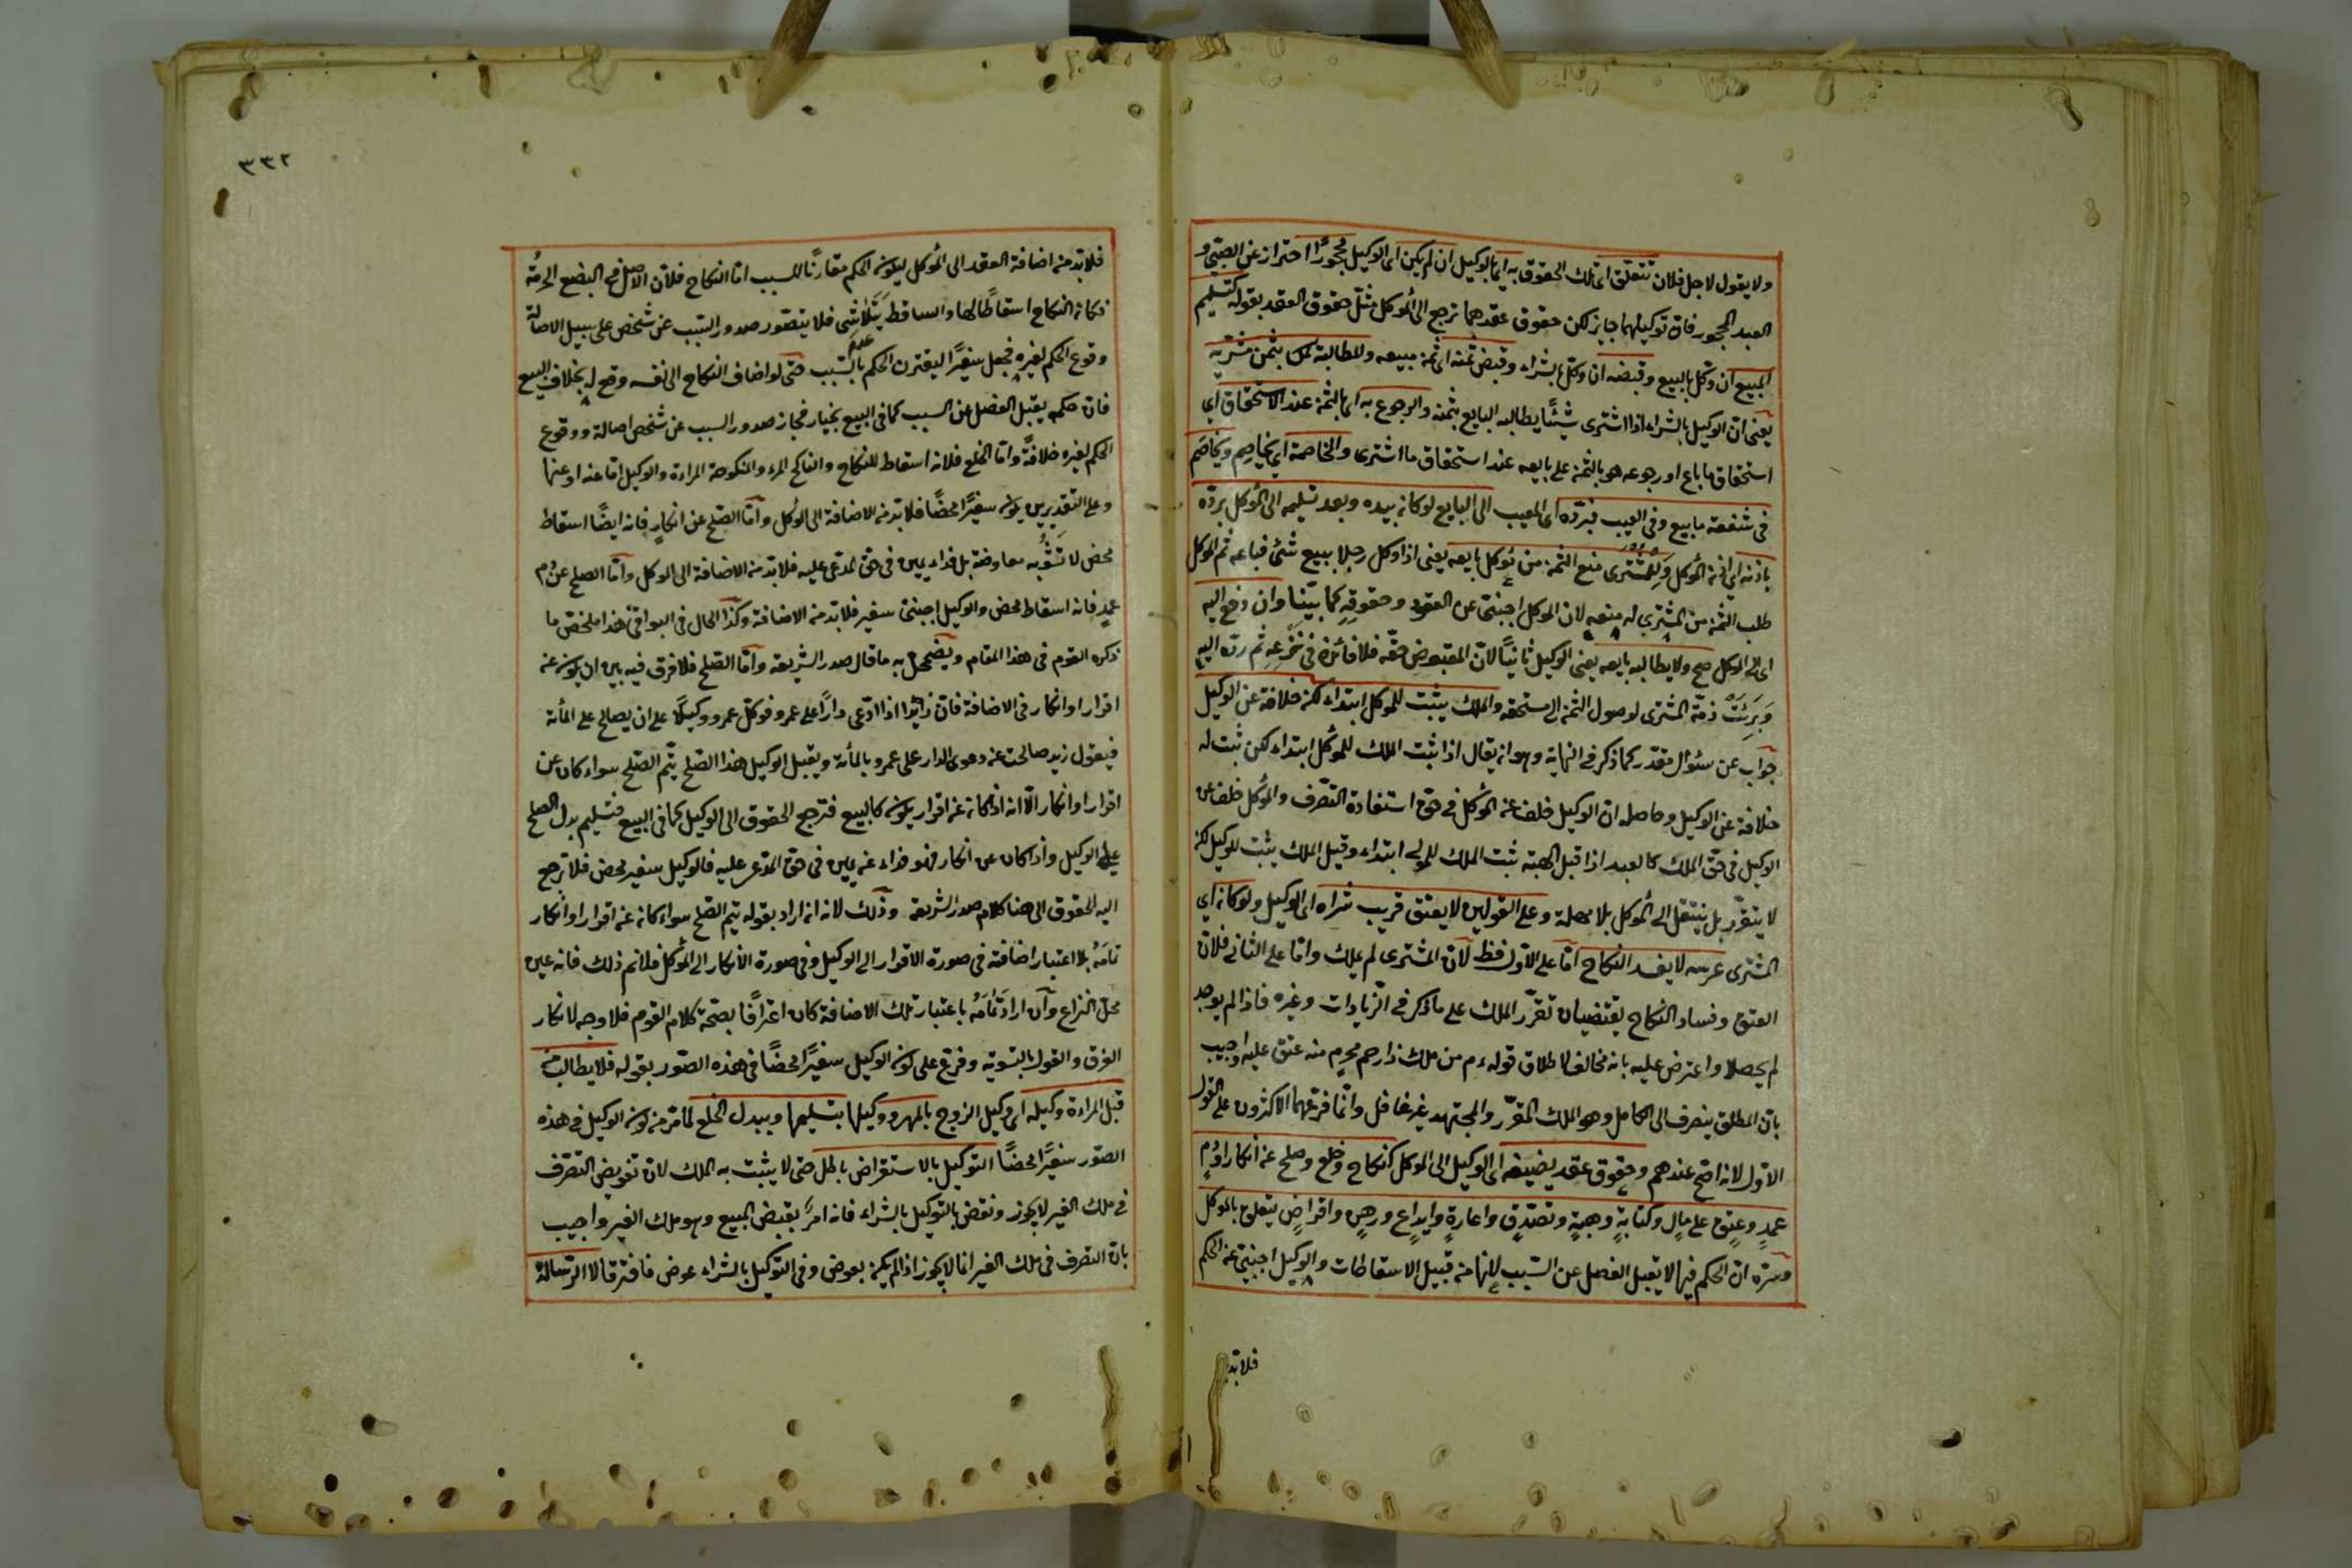 ولا يقول لاجل فلان تتعلق اى تلك الحقوق به اى بالوكيل ان لم يكن اى الوكيل محجورًا احتراز عن الصبى و
العبد المحجور فان توكيلهما جايز لكن حقوق عقدهما ترجع الى الموكل مثّل حقوق العقد بقوله كتسليم
المبيع ان وكل بالبيع وقبضه ان وكل بالشراء وقبض ثمنه اى ثمن مبيعه والمطالبة بثمن مشتريه
يعنى ان الوكيل بالشراء اذا اشترى شيئًا يطالبه البايع بثمنه والرجوع به اى بالثمن عند الاستحقاق اى
استحقاق ما باع او رجوعه هو بالثمن على بايعه عند استحقاق ما اشترى والمخاصمة اى يخاصِم ويخاصَم
فى شفعة ما بيع وفى العيب فيردّه اى المعيب الى البايع لو كان بيده وبعد تسليمه الى الموكل يردّه
باذنه اى اذن الموكل وللمشترى منع الثمن من موكل بايعه يعنى اذا وكل رجلا ببيع شئ فباعه ثم الموكل
طلب الثمن من المشترى له منعه لان الموكل اجنبىّ عن العقد وحقوقه كما بيّنا وان دفع اليه
اى الى الموكل صح ولا يطالبه بايعه يعنى الوكيل ثانيًا لانّ المقبوض حقّه فلا فائدة فى نزعه ثم ردّه اليه
وبرئت ذمّة المشترى لوصول الثمن الى مستحقه والملك يثبت للموكل ابتداء لكن خلافة عن الوكيل
جواب عن سئوال مقدّر كما ذكر فى النهاية وهو ان يقال اذا ثبت الملك للموكل ابتداء لكن ثبت له
خلافة عن الوكيل وحاصله ان الوكيل خلف عن الموكل فى حق استفادة التصرف والموكل خلف عن
الوكيل فى حق الملك كالعبد اذا قبل الهبة ثبت الملك للمولى ابتداء وقيل الملك يثبت للوكيل لكن
لا يتقرّر بل ينتقل الى الموكل بلا مهلة وعلى القولين لا يعتق قريب شراه اى الوكيل ولو كان اى
المشترى عرسه لا يفسد النكاح امّا على الاوّل فظ لانّ المشترى لم يملك وامّا على الثانى فلان
العتق وفساد النكاح يقتضيان تقرّر الملك على ما ذكر فى الزيادات وغيره فاذا لم يوجد
لم يحصلا واعترض عليه بانه مخالف لاطلاق قوله عم من ملك ذا رحم محرم منه عتق عليه واجيب
بان المطلق ينصرف الى الكامل وهو الملك المقرّر والمجتهد غير غافل وانّما فرّعهما الاكثرون على القول
الاوّل لانه اصّح عندهم وحقوق عقد يضيفه اى الوكيل الى الموكل كنكاح وخلع وصلح عن انكار او دم
عمد وعتق على مال وكتابة وهبة وتصدّق واعارة وايداع ورهن واقراض يتعلق بالموكل
وسرّه انّ الحكم فيها لا يقبل الفصل عن السّبب لانها من قبيل الاسقاطات والوكيل اجنبىّ عن الحكم
فلا بدّ
٣٣٢
فلا بدّ من اضافة العقد الى الموكل ليكون الحكم مقارنًا للسبب امّا النكاح فلانّ الاصل فى البضع الحرمة
فكان النكاح اسقاطًا لها والساقط يتلاشى فلا يتصّور صدور السّبب عن شخص على سبيل الاصالة
وقوع الحكم لغيره فجعل سفيرًا ليقترن الحكم بالسّبب حتى لو اضاف النكاح الى نفسه وقع له بخلاف البيع
فان حكمه يقبل الفصل عن السبب كما فى البيع بخيار فجاز صدور السبب عن شخص اصالة ووقوع
الحكم لغيره خلافةً وامّا الخلع فلانه اسقاط للنكاح والناكح المرء والمنكوحة المراءة والوكيل امّا عنه او عنها
وعلى التقديرين يكون سفيرًا محضًا فلا بّد من الاضافة الى الموكل وامّا الصّلح عن انكارٍ فانه ايضًا اسقاط
محض لا تشوبه معاوضة بل فداء يمين فى حق المدعى عليه فلا بّد من الاضافة الى الموكل وامّا الصلح عن دم
عمدٍ فانه اسقاط محض والوكيل اجنبىّ سفير فلا بّد من الاضافة وكذا الحال فى البواقى هذا ملخّص ما
ذكره القوم فى هذا المقام ويضمحلّ به ما قال صدر الشريعة وامّا الصّلح فلا فرق فيه بين ان يكون عن
اقرار او انكار فى الاضافة فان زايدًا اذا ادّعى دارًا على عمرو فوكّل عمرو وكيلًا على ان يصالح على المأة
فيقول زيد صالحت عن دعوى الدار على عمرو بالمأة ويقبل الوكيل هذا الصّلح يتّم الصّلح سواء كان عن
اقرار او انكار الّا انه اذا كان عن اقرار يكون كالبيع فترجع الحقوق الى الوكيل كما فى البيع فتسليم بدل الصلح
على الوكيل واذا كان عن انكار فهو فداء عن يمين فى حق المدعى عليه فالوكيل سفير محض فلا ترجع
اليه الحقوق الى هنا كلام صدر الشريعة وذلك لانه ان اراد بقوله يتم الصّلح سواء كان عن اقرار او انكار
تمامه بلا اعتبار اضافته فى صورة الاقرار الى الوكيل وفى صورة الانكار الى الموكل فلا نم ذلك فانه عين
محل النزاع وان اراد تمامه باعتبار تلك الاضافة كان اعترافًا بصحّة كلام القوم فلا وجه لانكار
الفرق والقول بالتسوية وفرّع على كون الوكيل سفيرًا محضًا فى هذه الصّور بقوله فلا يطالب من
قبل المراءة وكيله اى وكيل الزوج بالمهر ووكيلها بتسليمها وببدل الخلع لما مرّ من كون الوكيل فى هذه
الصّور سفيرًا محضًا التوكيل بالاستقراض باطل حتى لا يثبت به الملك لانّ تفويض التصّرف
فى ملك الغير لا يجوز ونقض بالتوكيل بالشراء فانه امر بقبض المبيع وهو ملك الغير واجيب
بان التصرف فى ملك الغير انما لا يجوز اذا لم يكن بعوض وفى التوكيل بالشراء عوض فافترقا لا الرسالة